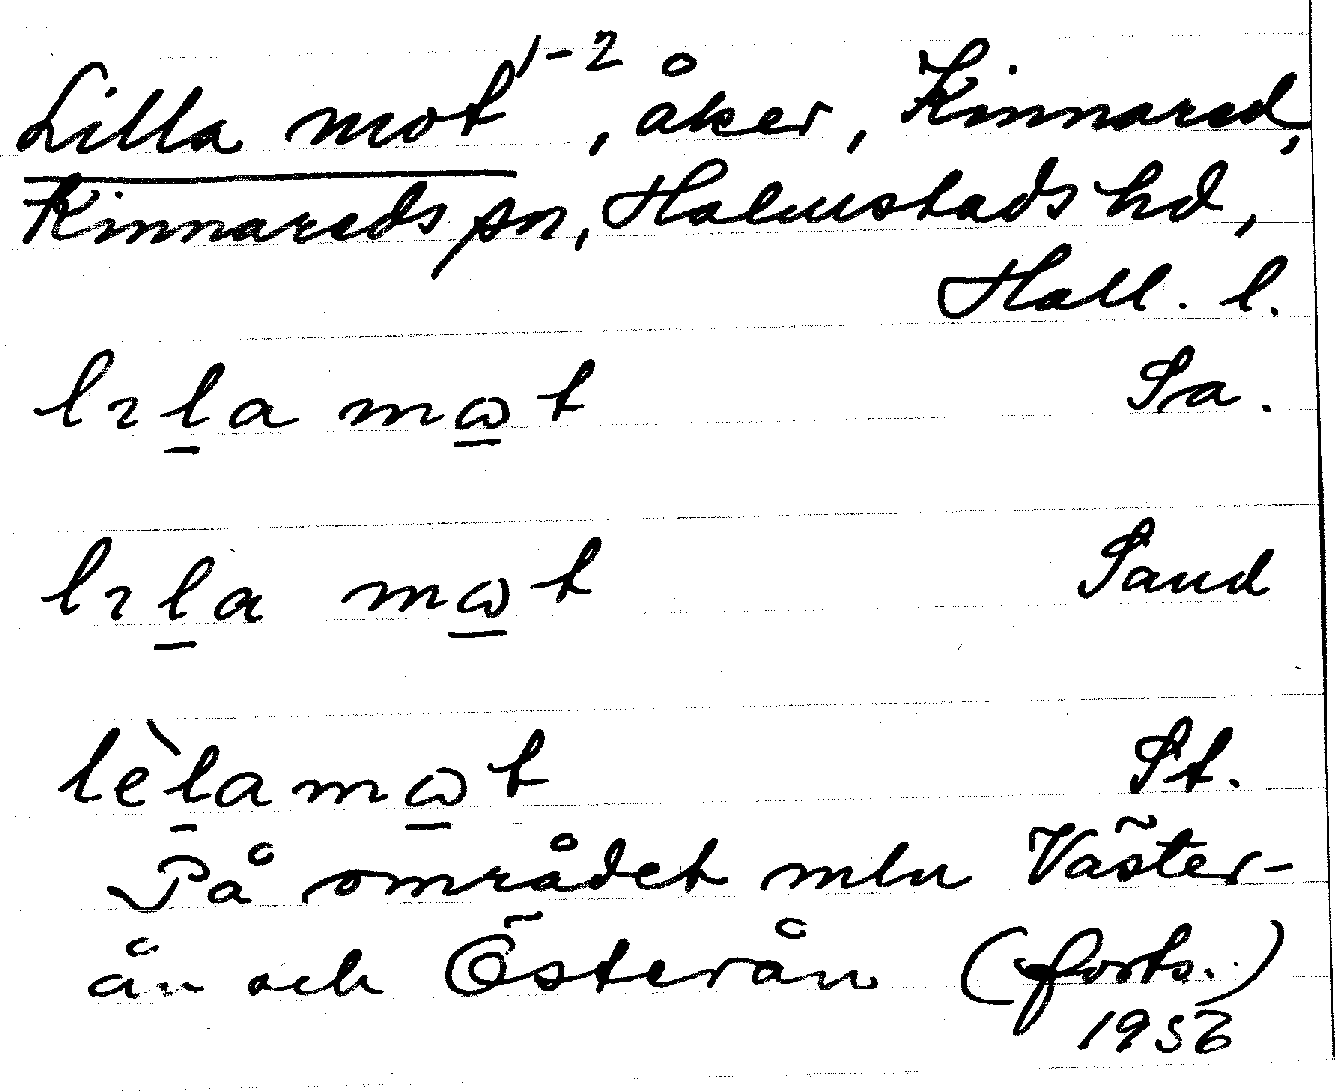 Lilla mot 1-2, åker, Kinnared,
Kinnareds sn, Halmstads hd,
Hall. l.
lɿl̲a mω̲t Sa.
lɿl̲a mω̲t Sand
lèl̲amω̲t St.
På området mln Väster-
ån och Österån (forts.)
1956